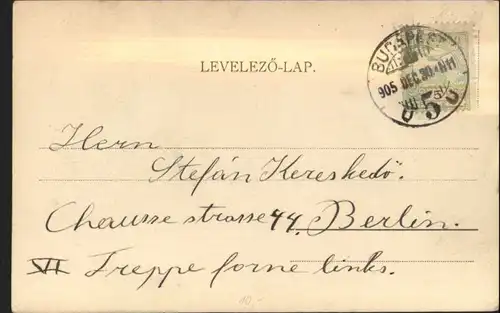 LEVELEZŐ-LAP.
BUDAPEST
905 DEC 30
5
Herrn
Stefán Kereskedő.
Chausse strasse 44. Berlin.
VII Treppe forne links.
10,-